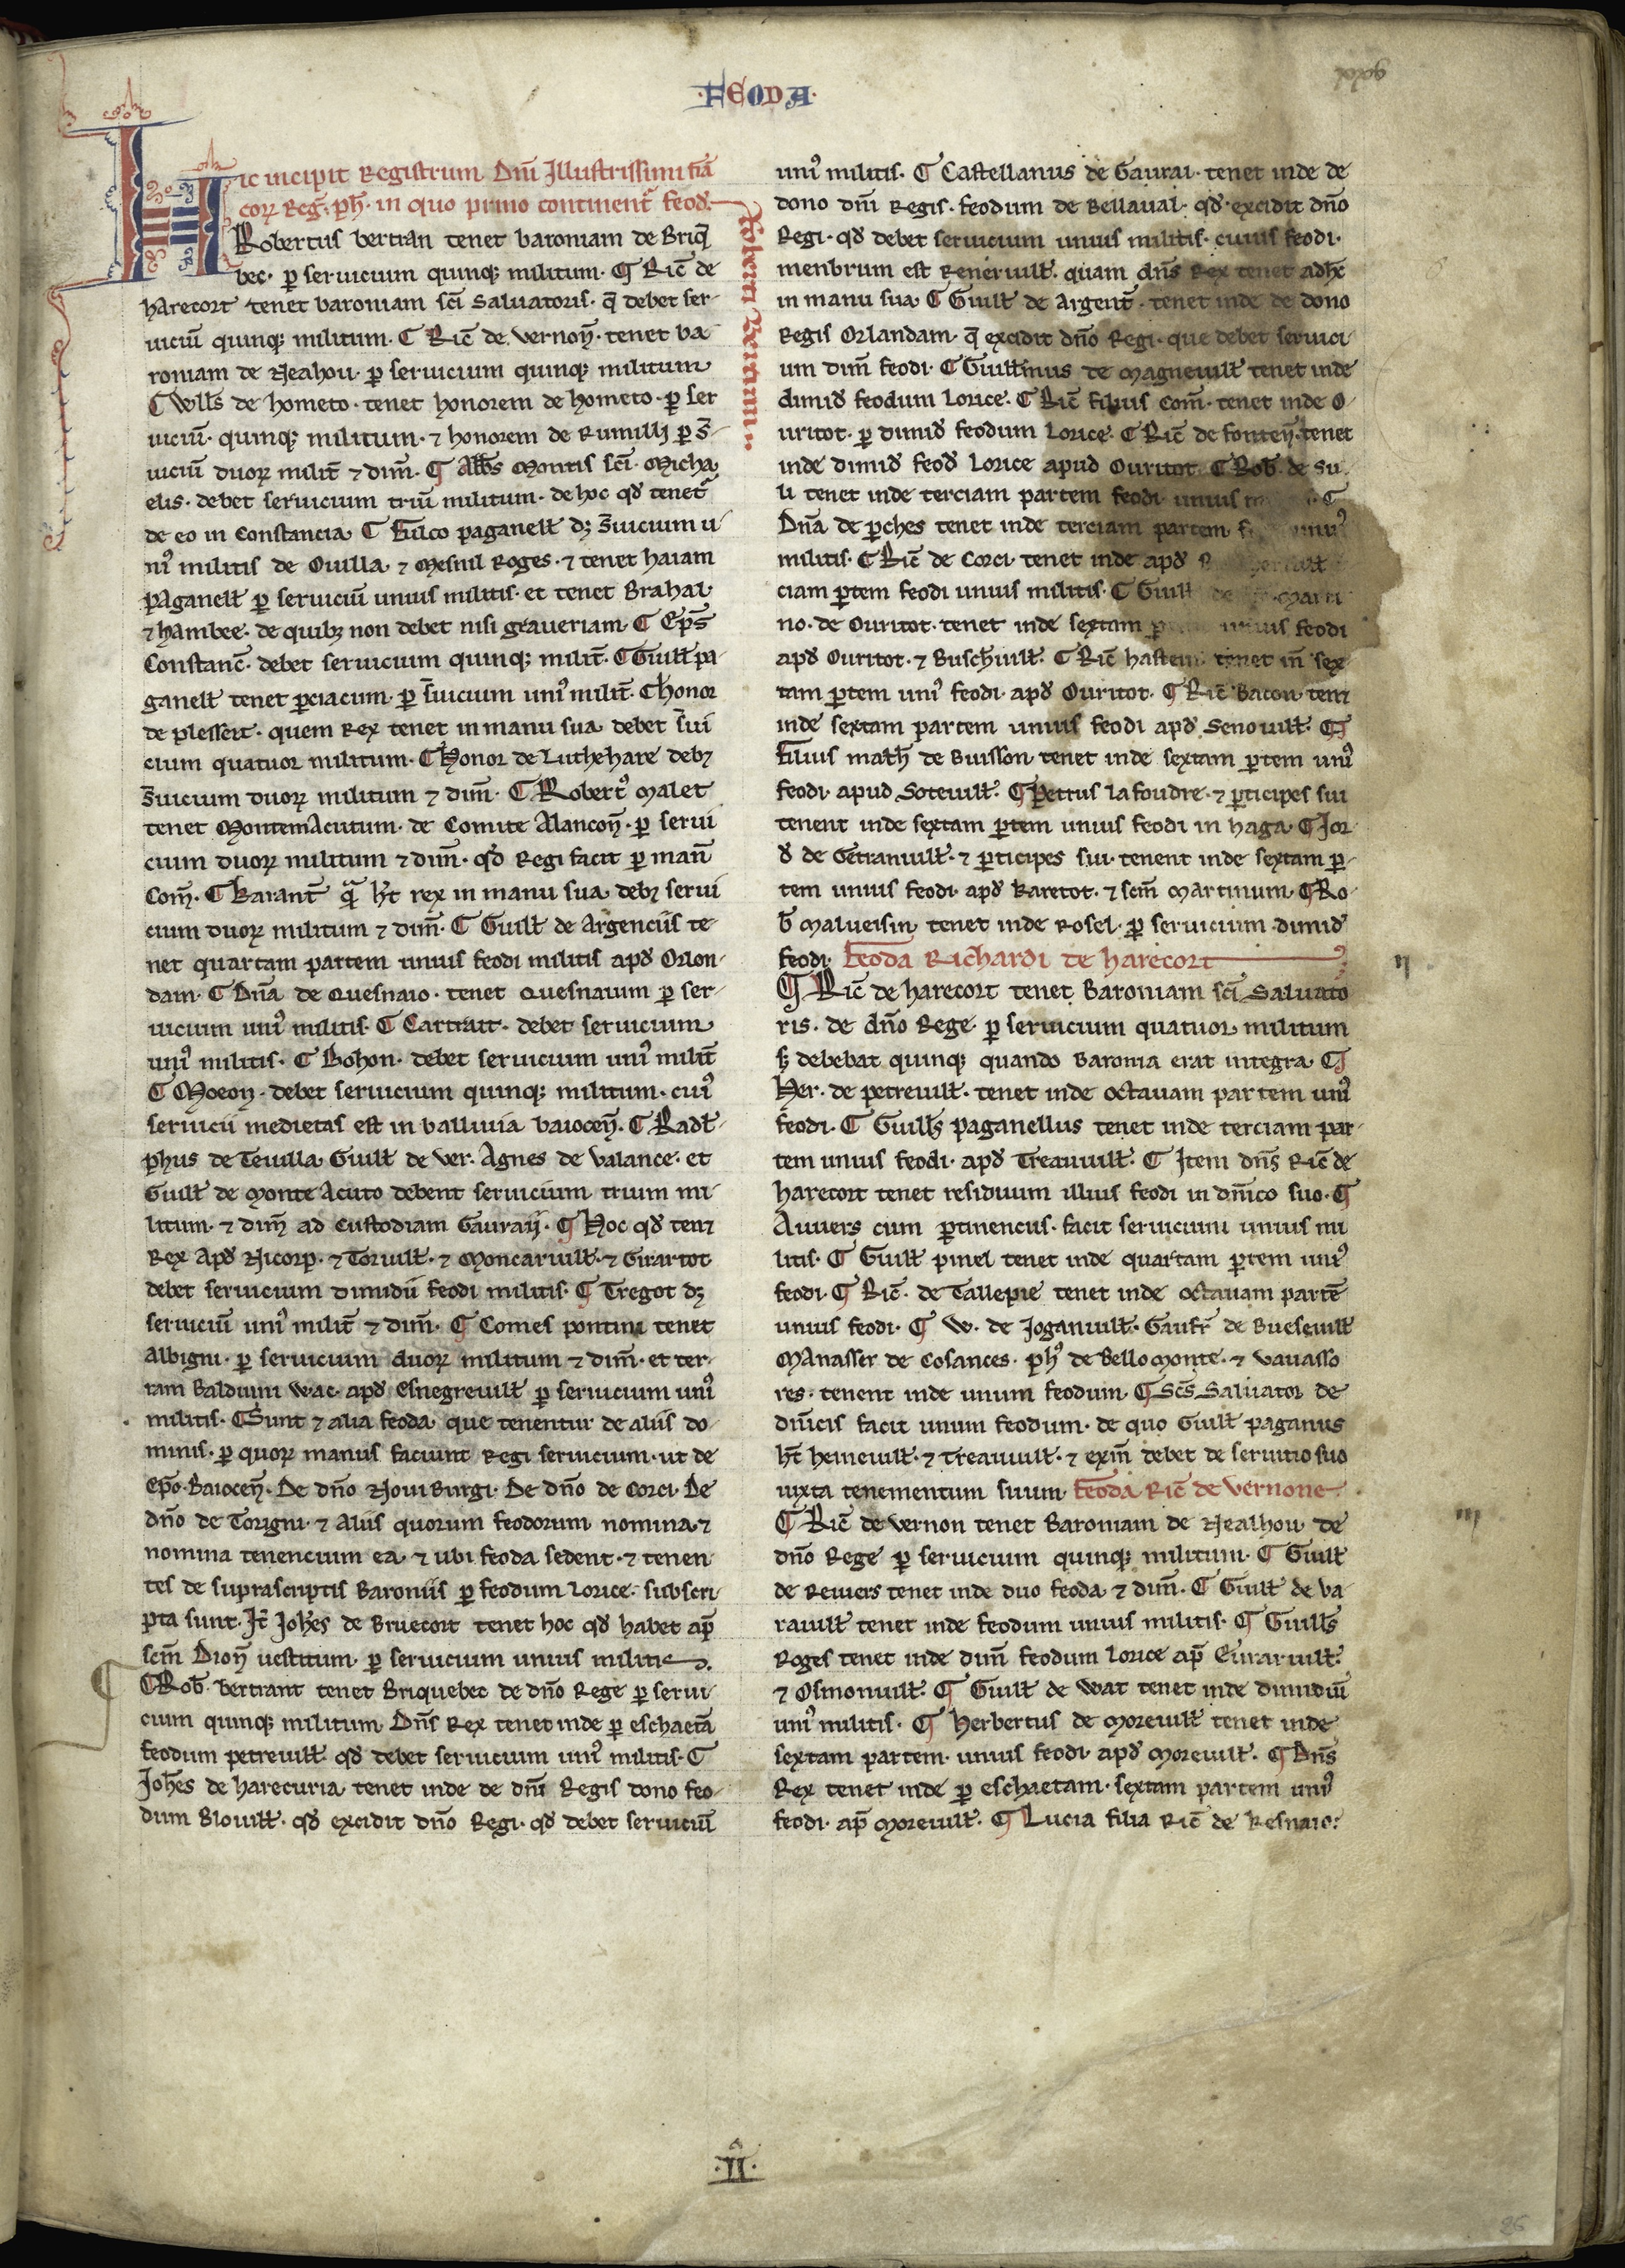 ·FEODA·
Hic incipit Registrum Dn̄i Illustrissimi frā
coꝝ Reg̃· ph̃· in quo primo continent᷑ feod̃·
Roberti Bertranni··
Robertus bertran tenet baroniam de Briq̃
bec· ꝑ seruicium quinqꝫ militum· ¶ Ric̃ de
harecort tenet baroniam sc̃i Saluatoris· q̃ debet ser-
uiciū quinqꝫ militum· ¶ Ric̃ de vernoñ· tenet ba-
roniam de Neahou· ꝑ seruicium quinqꝫ militum
¶ Wll̃s de hometo· tenet honorem de hometo· ꝑ ser
uiciū· quinqꝫ militum· ⁊ honorem de Rumillj ꝑ s̃-
uiciū duoꝝ milit̃ ⁊ dim̃· ¶ Abb̃s Montis sc̃i Micha
elis· debet seruicium triū militum· de hoc qd̃ tenet᷑
de eo in Constancia ¶ Fulco paganell̃ dꝫ s̃uicium u-
niꝰ militis de Ouilla ⁊ Mesnil Roges· ⁊ tenet haiam
paganell̃ ꝑ seruiciū unius militis· et tenet Brahal·
⁊ hambee· de quibꝫ non debet nisi graueriam· ¶ Ep̃s
Constanc̃· debet seruicium quinqꝫ milit̃· ¶ Guill̃ pa-
ganell̃ tenet ꝑciacum· ꝑ s̃uicium uniꝰ milit̃· ¶ honor
de plesseit· quem Rex tenet in manu sua debet s̃ui
cium quatuor militum· ¶ Honor de Luthehare debꝫ
s̃uicium duoꝝ militum ⁊ dim̃· ¶ Robertꝰ Malet
tenet MontemAcutum· de Comite Alancoñ· ꝑ serui
cium duoꝝ militum ⁊ dim̃· qd̃ Regi facit ꝑ mañ
Com̃· ¶ karant̃ q̃ h̃t rex in manu sua debꝫ serui
cium duoꝝ militum ⁊ dim̃· ¶ Guill̃ de Argenciis te-
net quartam partem unius feodi militis apd̃ Orlon-
dam· ¶ Dn̄a de Quesnaio· tenet Quesnaium ꝑ ser-
uicium uniꝰ militis· ¶ Cartrait· debet seruicium
uniꝰ militis· ¶ Bohon· debet seruicium uniꝰ milit̃
¶ Moeon· debet seruicium quinqꝫ militum· cuiꝰ
seruicii medietas est in balliuia baioceñ· ¶ Radl̃-
phus de Teuilla Guill̃ de ver· Agnes de valance· et
Guill̃ de Monte Acuto debent seruicium trium mi-
litum· ⁊ dim̃ ad custodiam Gauraij· ¶ Hoc qd̃ tenꝫ
Rex Apd̃ Nicorp· ⁊ Toruill̃· ⁊ Moncaruill̃· ⁊ Girartot
debet seruicium dimidii feodi militis· ¶ Tregot dꝫ
seruiciū uniꝰ milit̃ ⁊ dim̃· ¶ Comes pontiui tenet
Albigni· ꝑ seruicium duoꝝ militum ⁊ dim̃· et ter-
ram Balduini wac· apd̃ Esnegreuill̃ ꝑ seruicium uniꝰ
militis· ¶ Sunt ⁊ alia feoda que tenentur de aliis do-
minis· ꝑ quoꝝ manus faciunt Regi seruicium· ut de
Ep̃o· Baioceñ· De dño Noui Burgi· De dño de Corci· De
dño de Torigni· ⁊ Aliis quorum feodorum nomina ⁊
nomina tenencium ea ⁊ ubi feoda sedent· ⁊ tenen
tes de suprascriptis Baroniis ꝑ feodum Lorice· subscri-
pta sunt· It̃ Joh̃es de Bruecort tenet hoc qd̃ habet ap̃
scm̃ Dioñ uestitum· ꝑ seruicium unius militis·
¶ Rob̃· bertrant tenet Briquebec de dño Rege ꝑ serui-
cium quinqꝫ militum Dn̄s Rex tenet inde ꝑ eschaetã
feodum petreuill̃· qd̃ debet seruicium uniꝰ militis· ¶
Joh̃es de harecuria tenet inde de dn̄i Regis dono feo-
dum Blouill̃· qd̃ excidit dño Regi· qd̃ debet seruiciū
uniꝰ militis· ¶ Castellanus de Gaurai· tenet inde de
dono dn̄i Regis· feodum de Bellaual· qd̃ excidit dño
Regi· qd̃ debet seruicium unius militis· cuius feodi·
menbrum est Reneruill̃· quam dn̄s Rex tenet adhc̃
in manu sua ¶ Guill̃ de Argent̃· tenet inde de dono
Regis Orlandam· q̃ excidit dño Regi· que debet seruici-
um dim̃ feodi· ¶ Guill̃mus de Magneuill̃ tenet inde
dimid̃ feodum Lorice· ¶ Ric̃ filius Com̃· tenet inde O-
uritot· ꝑ dimid̃ feodum Lorice· ¶ Ric̃ de fonteñ· tenet
inde dimid̃ feod̃ Lorice apud Ouritot ¶ Rob̃· de Su
li tenet inde terciam partem feodi unius ¶
Dn̄a de ꝑches tenet inde terciam partem uniꝰ
militis· ¶ Ric̃ de Corci· tenet inde apd̃
ciam ꝑtem feodi unius militis· ¶ Guill̃ de Marti
no· de Ouritot· tenet inde sextam unius feodi
apd̃ Ouritot· ⁊ Buschuill̃· ¶ Ric̃ hasten tenet in̄ sex
tam ꝑtem uniꝰ feodi· apd̃ Ouritot· ¶ Ric̃ Bacon tenꝫ
inde sextam partem unius feodi apd̃ Senouill̃· ¶
Filius math̃ de Buisson tenet inde sextam ꝑtem uniꝰ
feodi· apud Soteuill̃· ¶ Petrus la foudre· ⁊ ꝑticipes sui
tenent inde sextam ꝑtem unius feodi in haga· ¶ Jor
d̃ de Getranuill̃· ⁊ ꝑticipes sui· tenent inde sextam ꝑ-
tem unius feodi· apd̃ karetot· ⁊ scm̃ Martinum· ¶ Ro-
b̃ malueisin tenet inde Rosel· ꝑ seruicium dimid̃
feodi· Feoda Richardi de harecort
¶ Ric̃ de harecort tenet Baroniam sc̃i Saluato
ris· de dño Rege ꝑ seruicium quatuor militum
sꝫ debebat quinqꝫ quando Baronia erat integra ¶
Her· de petreuill̃· tenet inde octauam partem uniꝰ
feodi· ¶ Guill̃s paganellus tenet inde terciam par-
tem unius feodi· apd̃ Treauuill̃· ¶ Item dn̄s Ric̃ de
harecort tenet residuum illius feodi in dn̄ico suo· ¶
Auuers cum ꝑtinenciis· facit seruicium unius mi
litis· ¶ Guill̃ pinel tenet inde quartam ꝑtem uniꝰ
feodi· ¶ Ric̃· de Tallepie tenet inde octauam partẽ
unius feodi· ¶ W· de Joganuill̃· Gaufr̃ de Bueseuill̃
Manasser de Cosances· ph̃ꝰ de Bello monte· ⁊ vauasso
res· tenent inde unum feodum· ¶ Sc̃s Saluator de
dn̄icis facit unum feodum· de quo Guill̃ paganus
h̃t hemeuill̃· ⁊ Treauuill̃· ⁊ exiñ debet de seruitio suo
iuxta tenementum suum· Feoda Ric̃ de vernone
¶ Ric̃ de vernon tenet Baroniam de Nealhou de
dño Rege ꝑ seruicium quinqꝫ militum· ¶ Guill̃
de Reuiers tenet inde duo feoda ⁊ dim̃· ¶ Guill̃ de va-
rauill̃ tenet inde feodum unius militis· ¶ Guill̃s
Roges tenet inde dim̃ feodum Lorice ap̃ Euraruill̃·
⁊ Osmonuill̃· ¶ Guill̃ de wat tenet inde dimidiū
uniꝰ militis· ¶ Herbertus de Moreuill̃ tenet inde
sextam partem· unius feodi· apd̃ Moreuill̃· ¶ Dn̄s
Rex tenet inde ꝑ eschaetam· sextam partem uniꝰ
feodi· ap̃ Moreuill̃· ¶ Lucia filia Ric̃ de kesnaio·
ij
iij
·II·
26